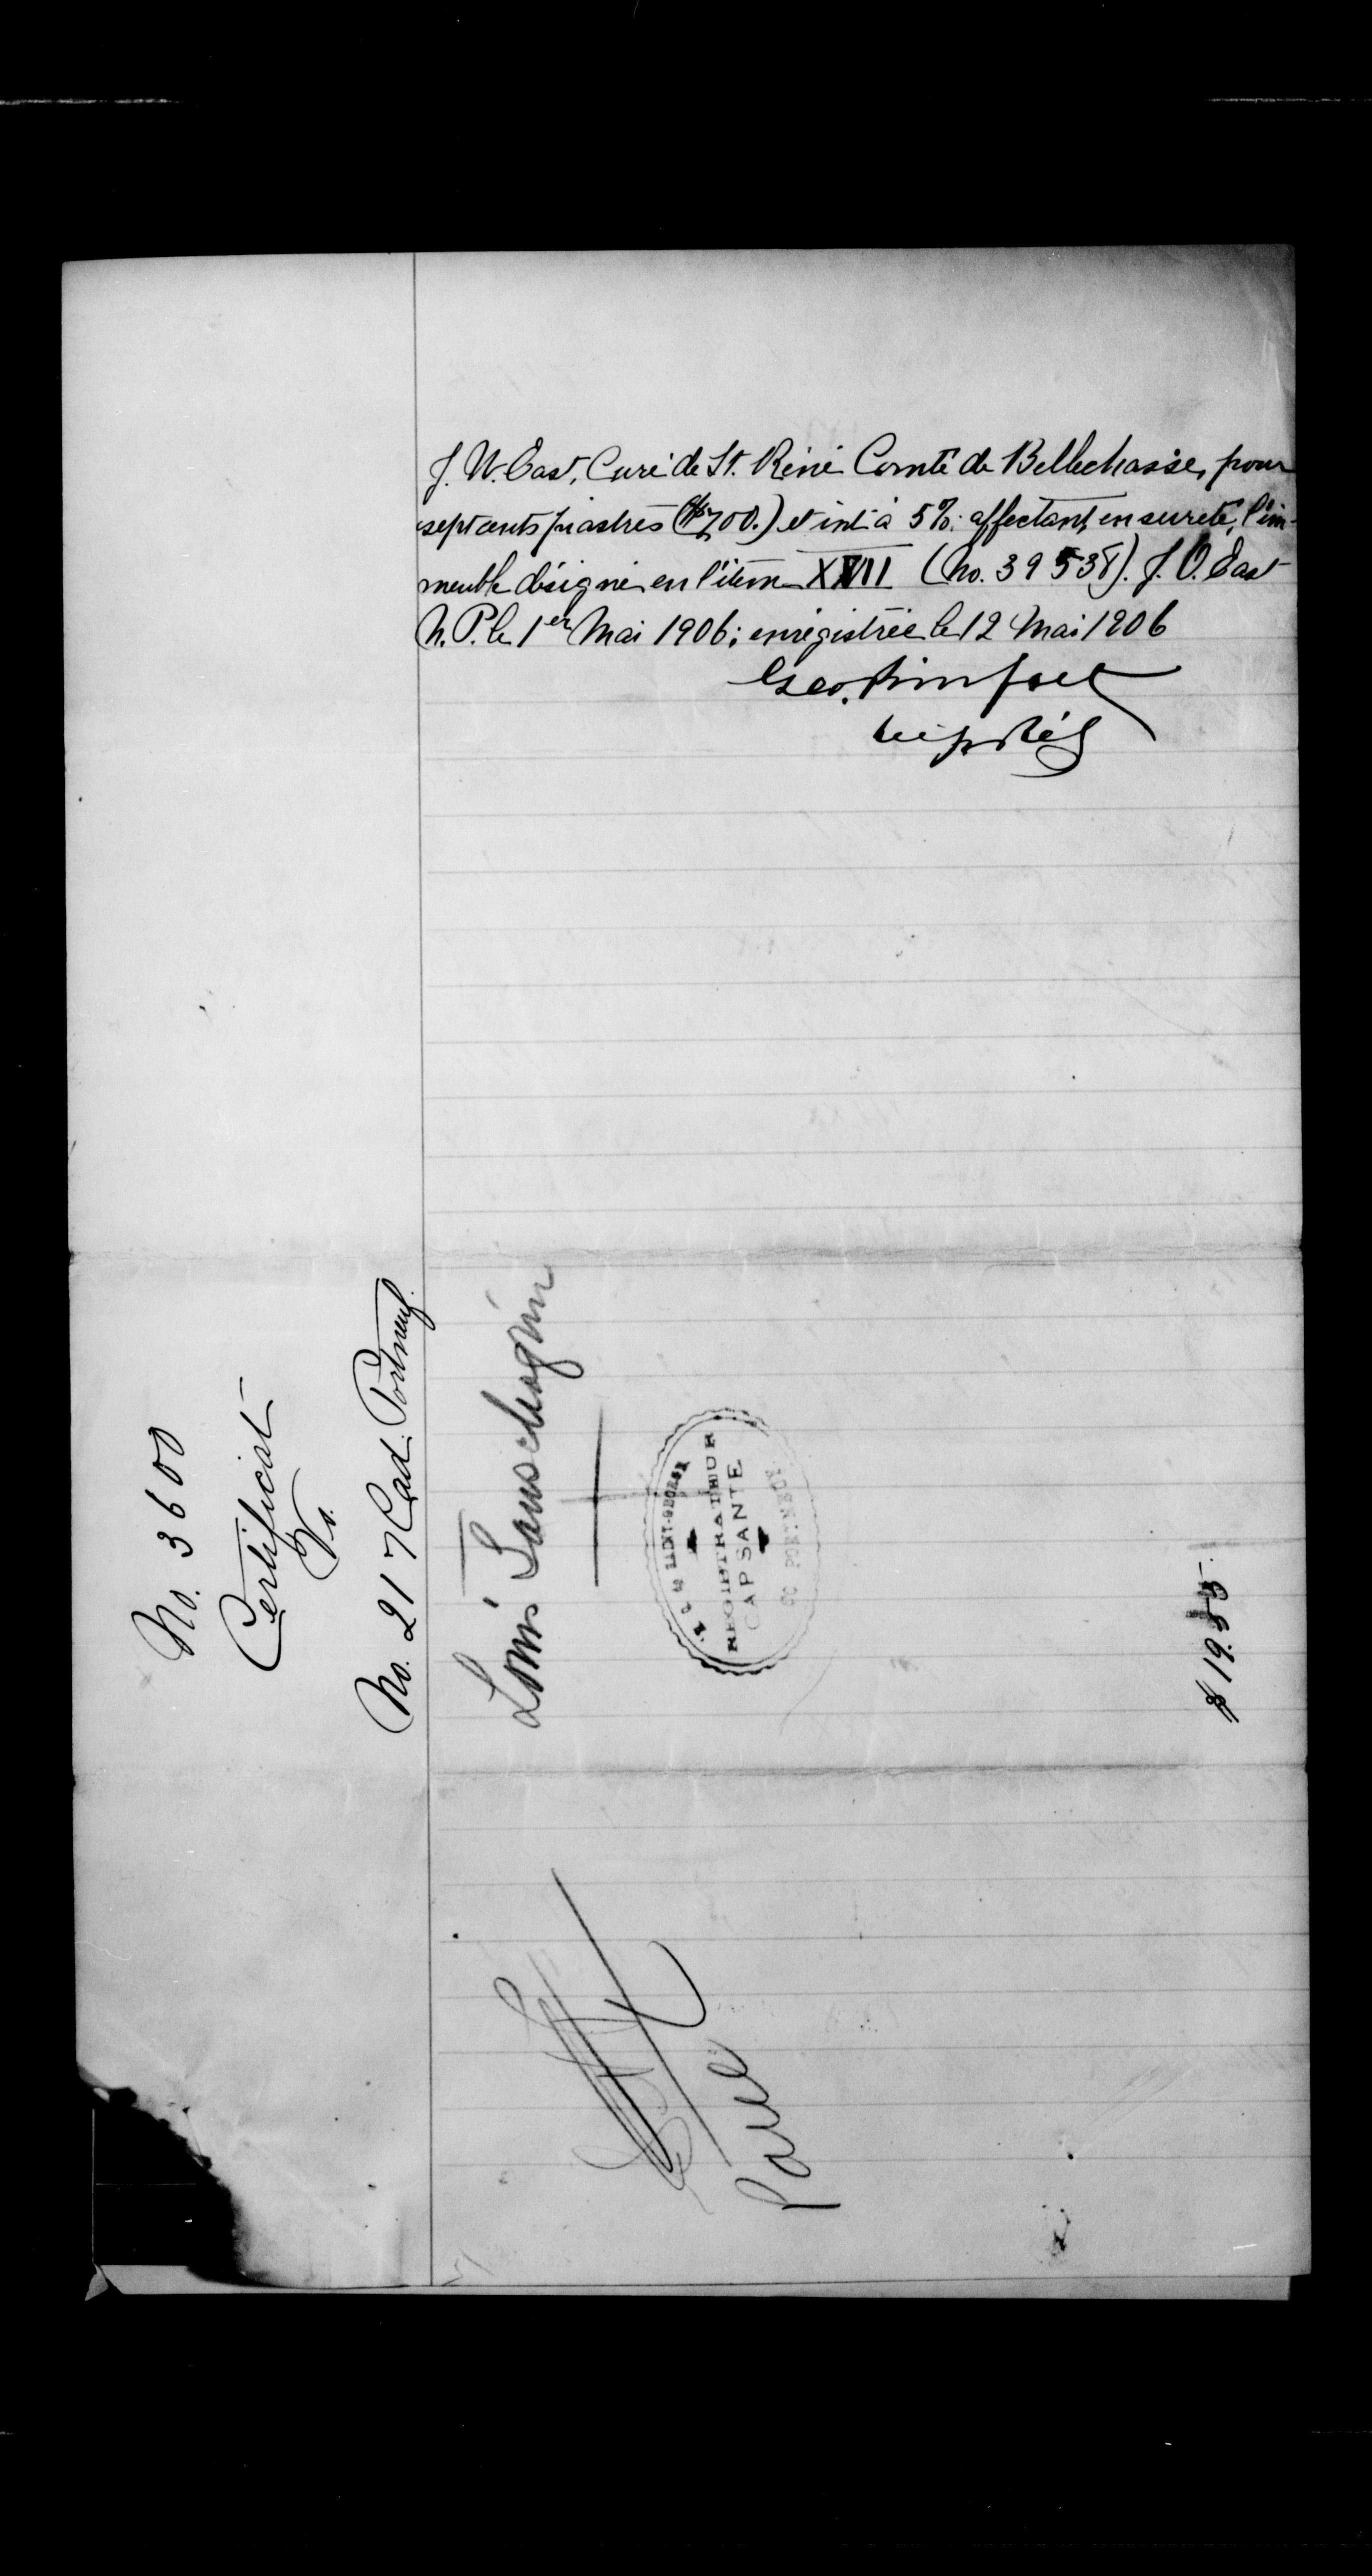 J. W. East, Curé de St. Réné Comté de Bellechasse, pour
sept cents piastres ($700.) et int. à 5%: affectant, en sureté, l'im-
meuble désigné en l'item XVII (No. 39538). J. O. East
N. P. le 1er Mai 1906; enrégistrée le 12 Mai 1906
Geo.
Dép Rég
No. 3600
Certificat
No.
No. 217 Cad. Portneuf.
Louis
SAINT-GEORGE
REGISTRATEUR
CAP SANTE
CO PORTNEUF
$ 19.55